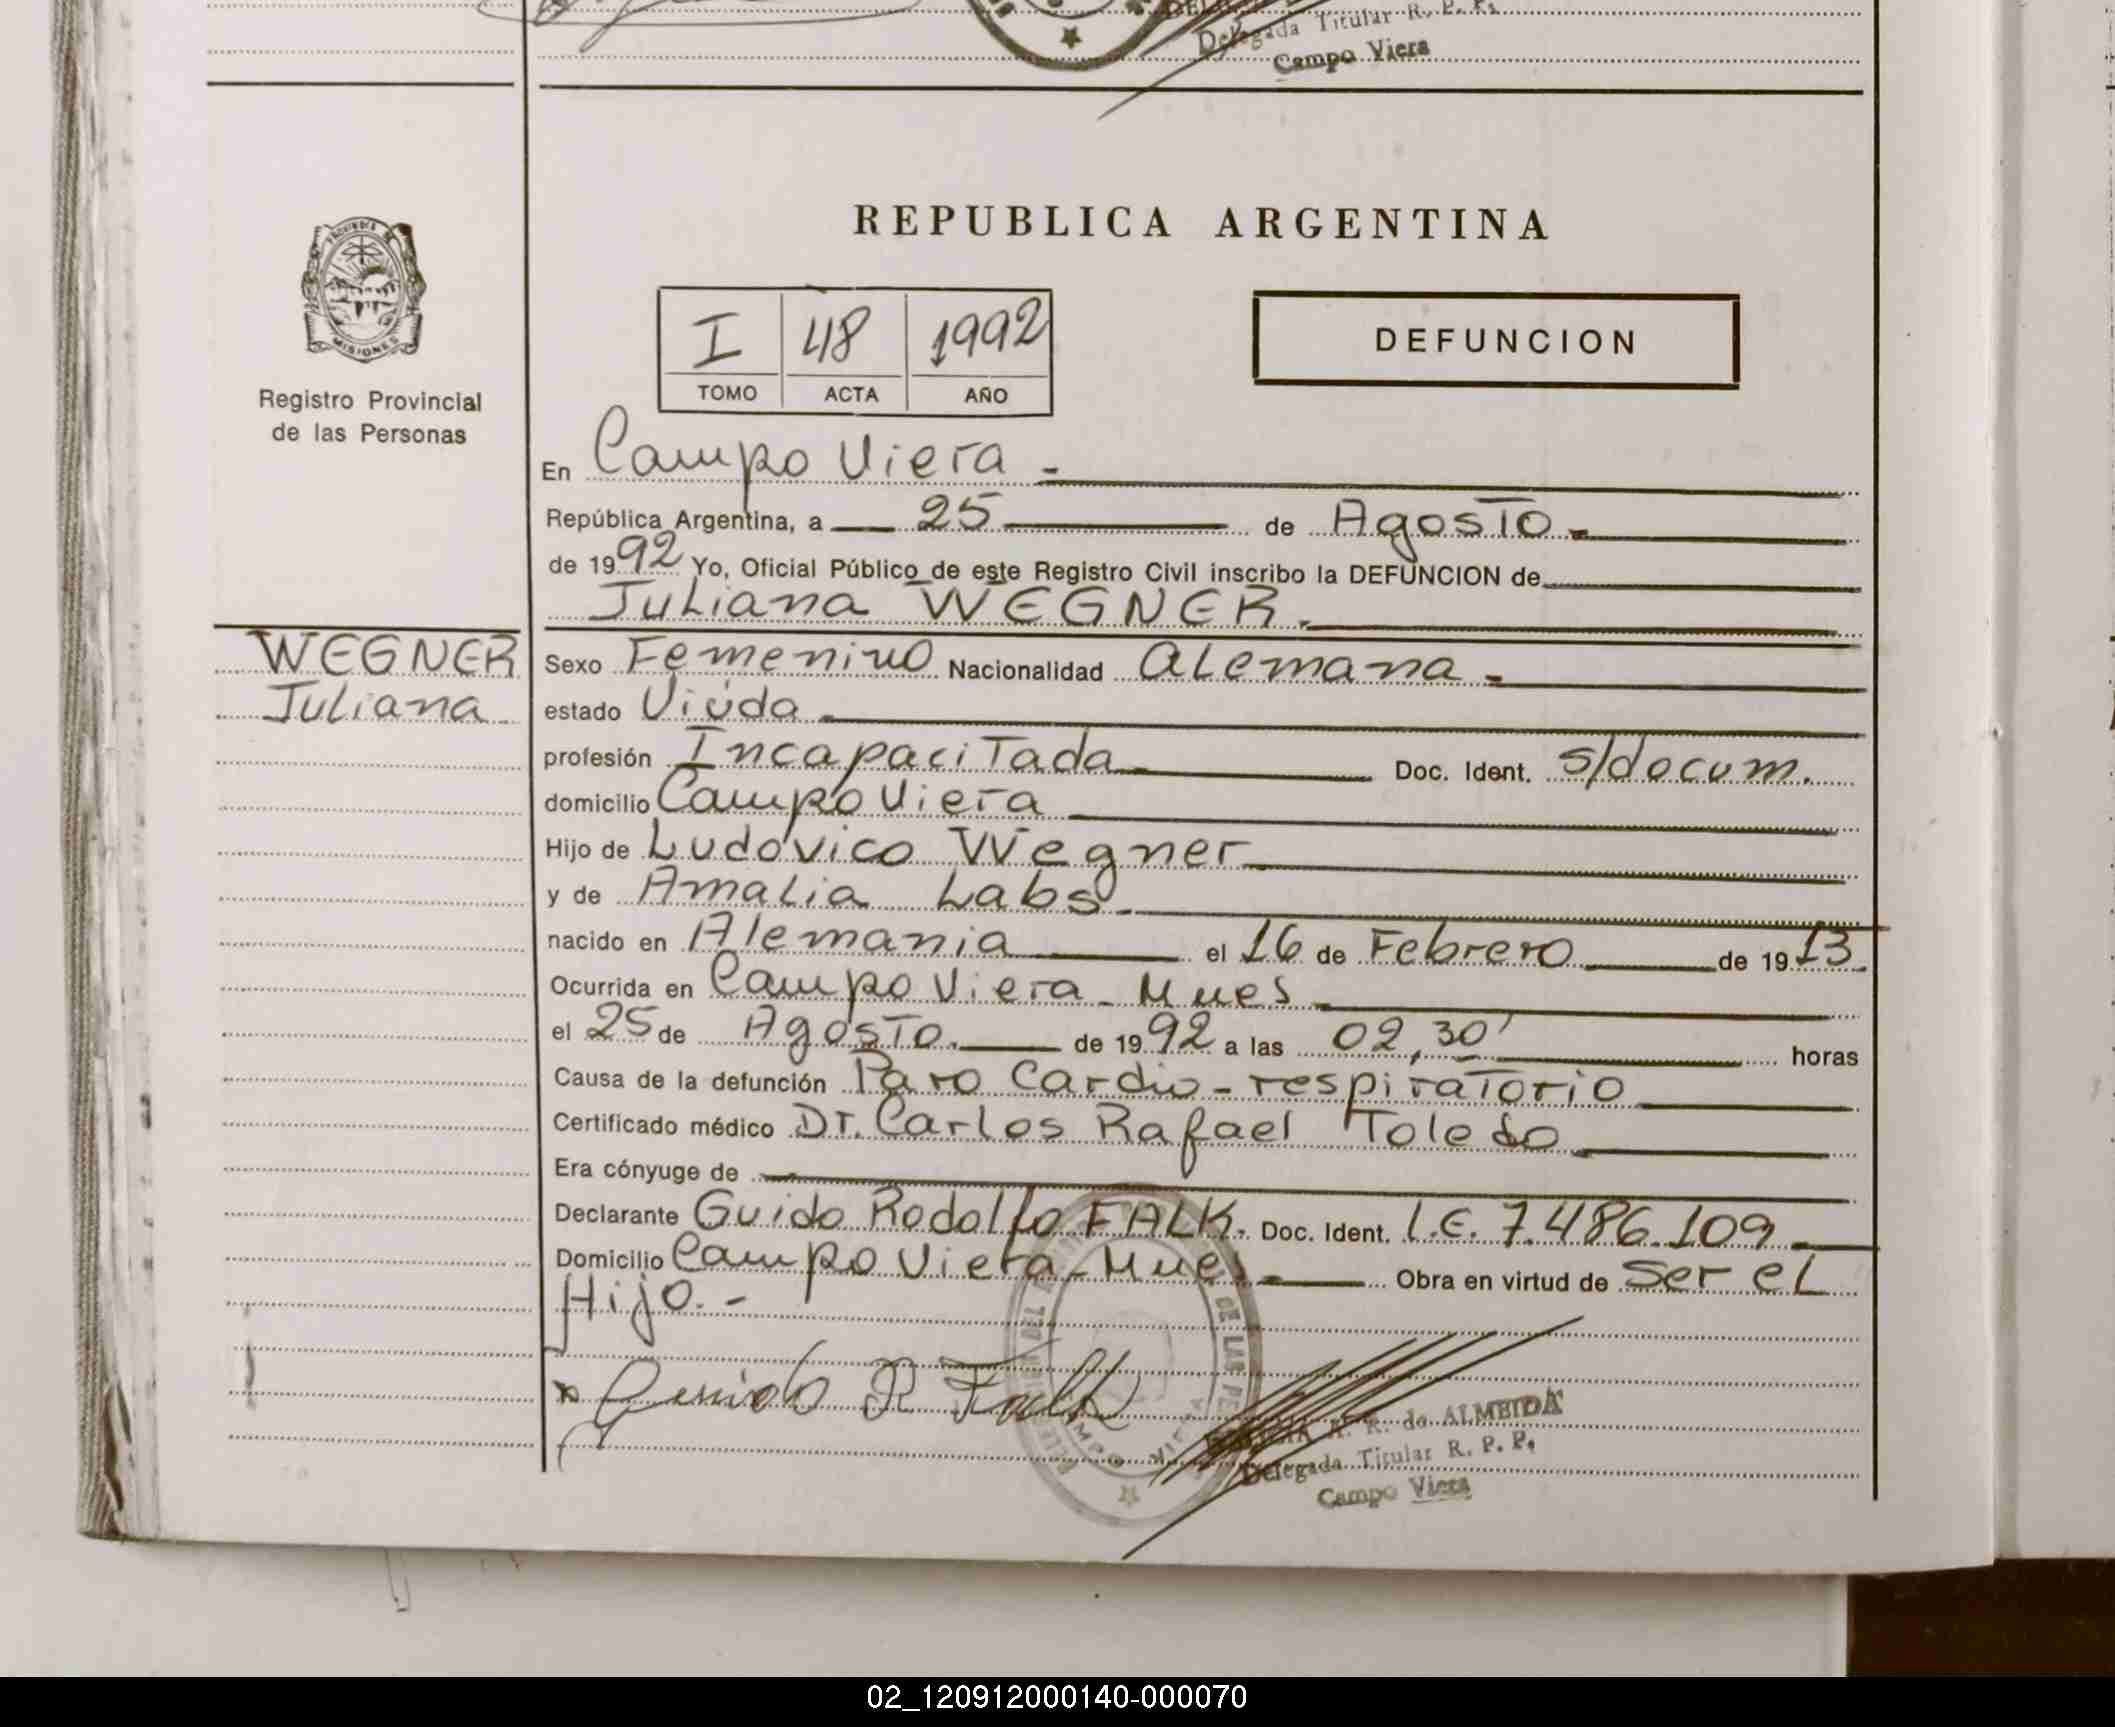 Delegada Titular R. P. P.
Campo Viera
REPUBLICA ARGENTINA
PROVINCIA DE
MISIONES
Registro Provincial
de las Personas
I 48 1992
TOMO ACTA AÑO
DEFUNCION
En Campo Viera -
República Argentina, a 25 de Agosto.
de 1992 Yo, Oficial Público de este Registro Civil inscribo la DEFUNCION de
Juliana WEGNER.
WEGNER
Juliana
Sexo Femenino Nacionalidad Alemana.
estado Viúda
profesión Incapacitada Doc. Ident. s/docum.
domicilio Campo Viera
Hijo de Ludovico Wegner
y de Amalia Labs
nacido en Alemania el 16 de Febrero de 1913
Ocurrida en Campo Viera - Mnes
el 25 de Agosto. de 1992 a las 02,30' horas
Causa de la defunción Paro Cardio-respiratorio
Certificado médico Dr. Carlos Rafael Toledo
Era cónyuge de
Declarante Guido Rodolfo FALK. Doc. Ident. L.E. 7.486.109
Domicilio Campo Viera - Mnes Obra en virtud de ser el
Hijo.-
Guido R Falk
R. de ALMEIDA
Delegada Titular R. P. P.
Campo Viera
02_120912000140-000070